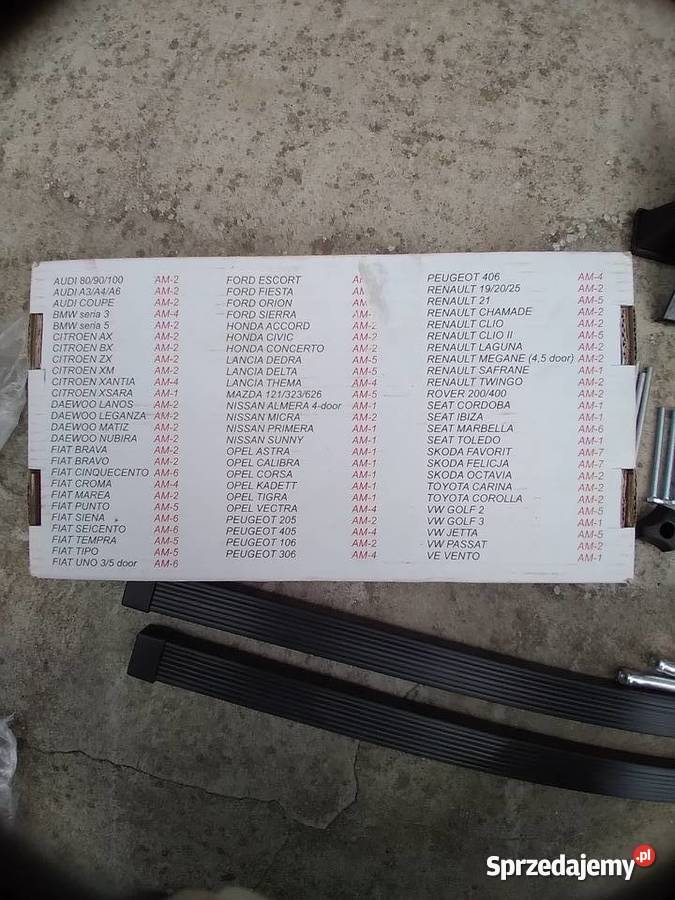 AUDI 80/90/100 AM-2
AUDI A3/A4/A6 AM-2
AUDI COUPE AM-2
BMW seria 3 AM-4
BMW seria 5 AM-2
CITROEN AX AM-2
CITROEN BX AM-2
CITROEN ZX AM-2
CITROEN XM AM-2
CITROEN XANTIA AM-4
CITROEN XSARA AM-1
DAEWOO LANOS AM-2
DAEWOO LEGANZA AM-2
DAEWOO MATIZ AM-2
DAEWOO NUBIRA AM-2
FIAT BRAVA AM-2
FIAT BRAVO AM-2
FIAT CINQUECENTO AM-6
FIAT CROMA AM-4
FIAT MAREA AM-2
FIAT PUNTO AM-5
FIAT SIENA AM-6
FIAT SEICENTO AM-6
FIAT TEMPRA AM-5
FIAT TIPO AM-5
FIAT UNO 3/5 door AM-6
FORD ESCORT
FORD FIESTA
FORD ORION
FORD SIERRA
HONDA ACCORD AM-2
HONDA CIVIC AM-2
HONDA CONCERTO AM-2
LANCIA DEDRA AM-5
LANCIA DELTA AM-5
LANCIA THEMA AM-4
MAZDA 121/323/626 AM-5
NISSAN ALMERA 4-door AM-1
NISSAN MICRA AM-2
NISSAN PRIMERA AM-1
NISSAN SUNNY AM-1
OPEL ASTRA AM-1
OPEL CALIBRA AM-1
OPEL CORSA AM-1
OPEL KADETT AM-1
OPEL TIGRA AM-1
OPEL VECTRA AM-4
PEUGEOT 205 AM-2
PEUGEOT 405 AM-4
PEUGEOT 106 AM-2
PEUGEOT 306 AM-4
PEUGEOT 406 AM-4
RENAULT 19/20/25 AM-2
RENAULT 21 AM-5
RENAULT CHAMADE AM-2
RENAULT CLIO AM-2
RENAULT CLIO II AM-5
RENAULT LAGUNA AM-2
RENAULT MEGANE (4,5 door) AM-2
RENAULT SAFRANE AM-1
RENAULT TWINGO AM-2
ROVER 200/400 AM-2
SEAT CORDOBA AM-1
SEAT IBIZA AM-1
SEAT MARBELLA AM-6
SEAT TOLEDO AM-1
SKODA FAVORIT AM-7
SKODA FELICJA AM-7
SKODA OCTAVIA AM-2
TOYOTA CARINA AM-1
TOYOTA COROLLA AM-2
VW GOLF 2 AM-5
VW GOLF 3 AM-1
VW JETTA AM-5
VW PASSAT AM-2
VE VENTO AM-1
Sprzedajemy.pl